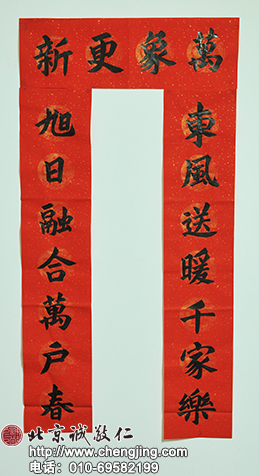 萬象更新
東風送暖千家樂
旭日融合萬户春
北京诚敬仁
http://www.chengjing.com
电话：010-69582199